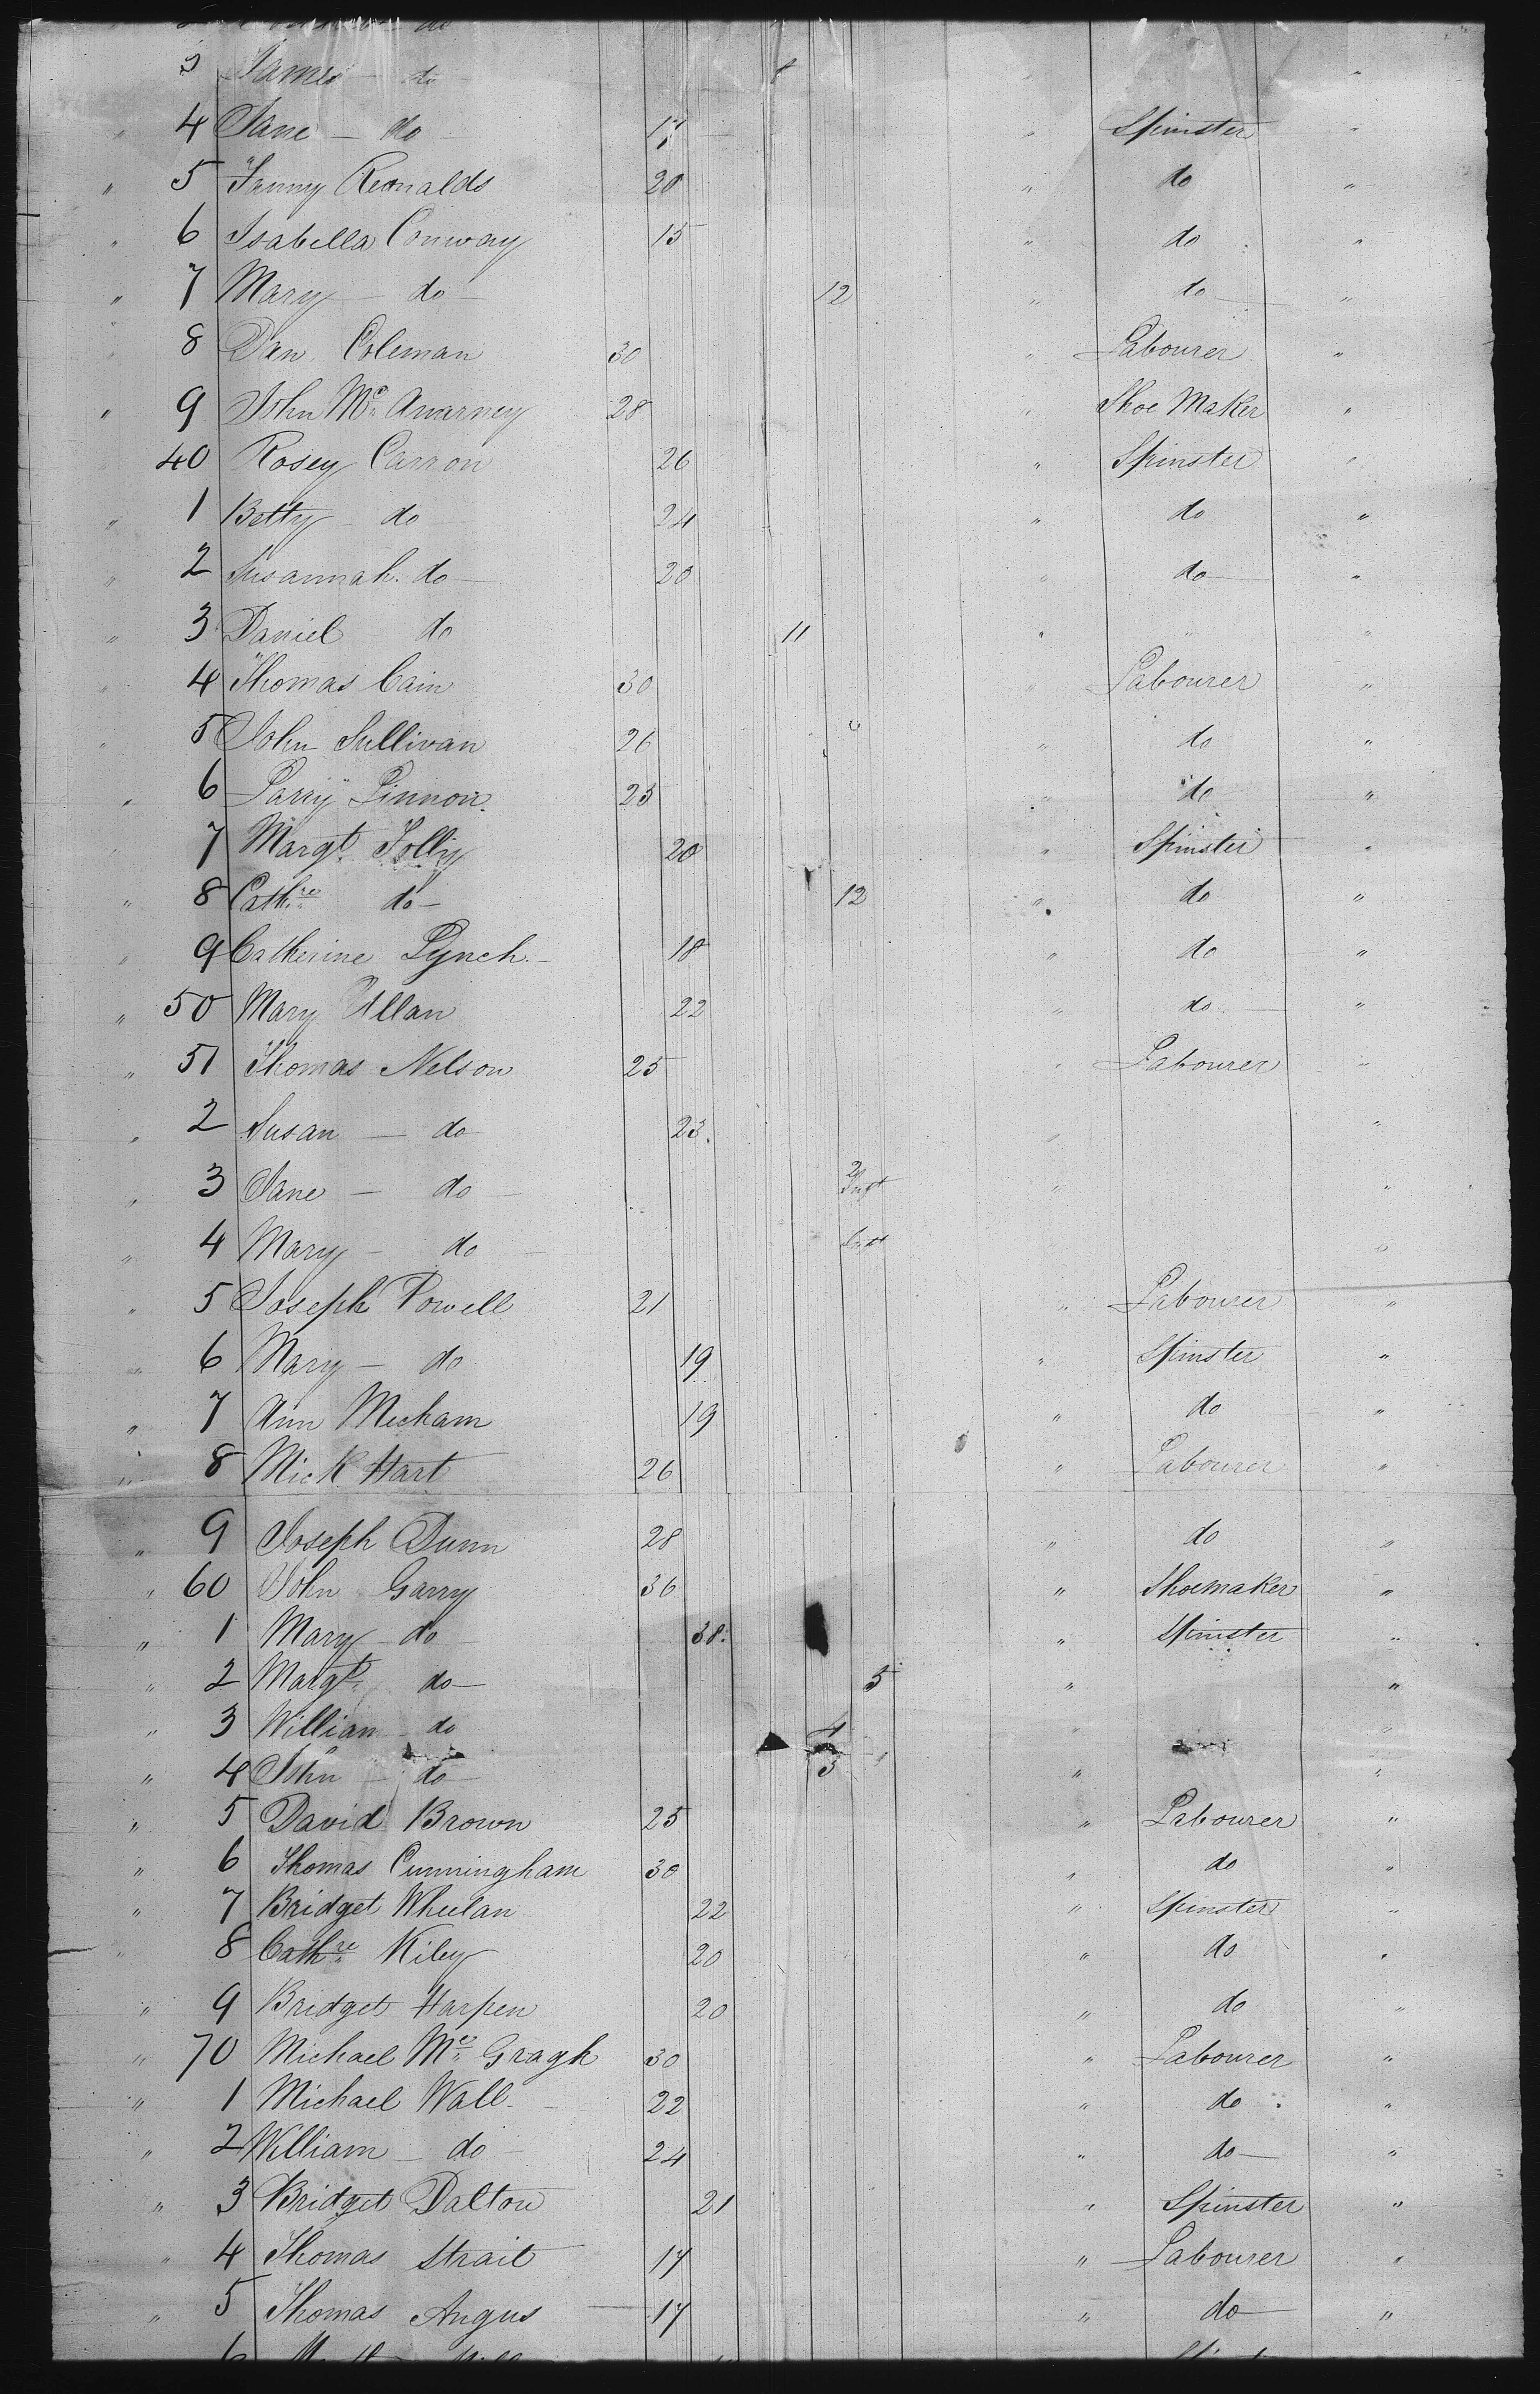 3 James - do 8 "
4 Jane - do - 17 " Spinster "
" 5 Fanny Reonalds 20 " do "
" 6 Isabella Conway 15 " do "
" 7 Mary - do - 12 " do "
" 8 Dan Coleman 30 " Labourer "
" 9 John Mc Awarney 28 " Shoe Maker "
40 Rosey Carron 26 " Spinster "
" 1 Betty - do - 24 " do "
" 2 Susannah. do - 20 " do "
" 3 Daniel do 11 " " "
" 4 Thomas Cain 30 " Labourer "
" 5 John Sullivan 26 " do "
" 6 Larry Linnon. 25 " do "
" 7 Margt. Jolly 20 " Spinster "
" 8 Cathre do - 12 " do "
" 9 Catherine Lynch - 18 " do "
" 50 Mary Allan 22 " do "
" 51 Thomas Nelson 25 " Labourer "
" 2 Susan - do 23. " "
" 3 Jane - do - 2 Inft " "
" 4 Mary - do - Inft "
" 5 Joseph Powell 21 " Labourer "
" 6 Mary - do 19 " Spinster "
" 7 Ann Mecham 19 " do "
" 8 Mick Hart 26 " Labourer "
" 9 Joseph Dunn 28 " do "
" 60 John Garry 36 " Shoemaker "
" 1 Mary - do - 38. " Spinster "
" 2 Margt. do - 5 " "
" 3 William - do 4 " "
" 4 John - do - 3 " "
" 5 David Brown 25 " Labourer "
" 6 Thomas Cunningham 30 " do "
" 7 Bridget Wheelan 22 " Spinster "
" 8 Cathre Kiley 20 " do "
" 9 Bridget Harpen 20 " do "
" 70 Michael Mc Gragh 30 " Labourer "
" 1 Michael Wall - 22 " do "
" 2 William - do - 24 " do "
" 3 Bridget Dalton 21 " Spinster "
" 4 Thomas Strait 17 " Labourer "
" 5 Thomas Angus 17 " do "
6